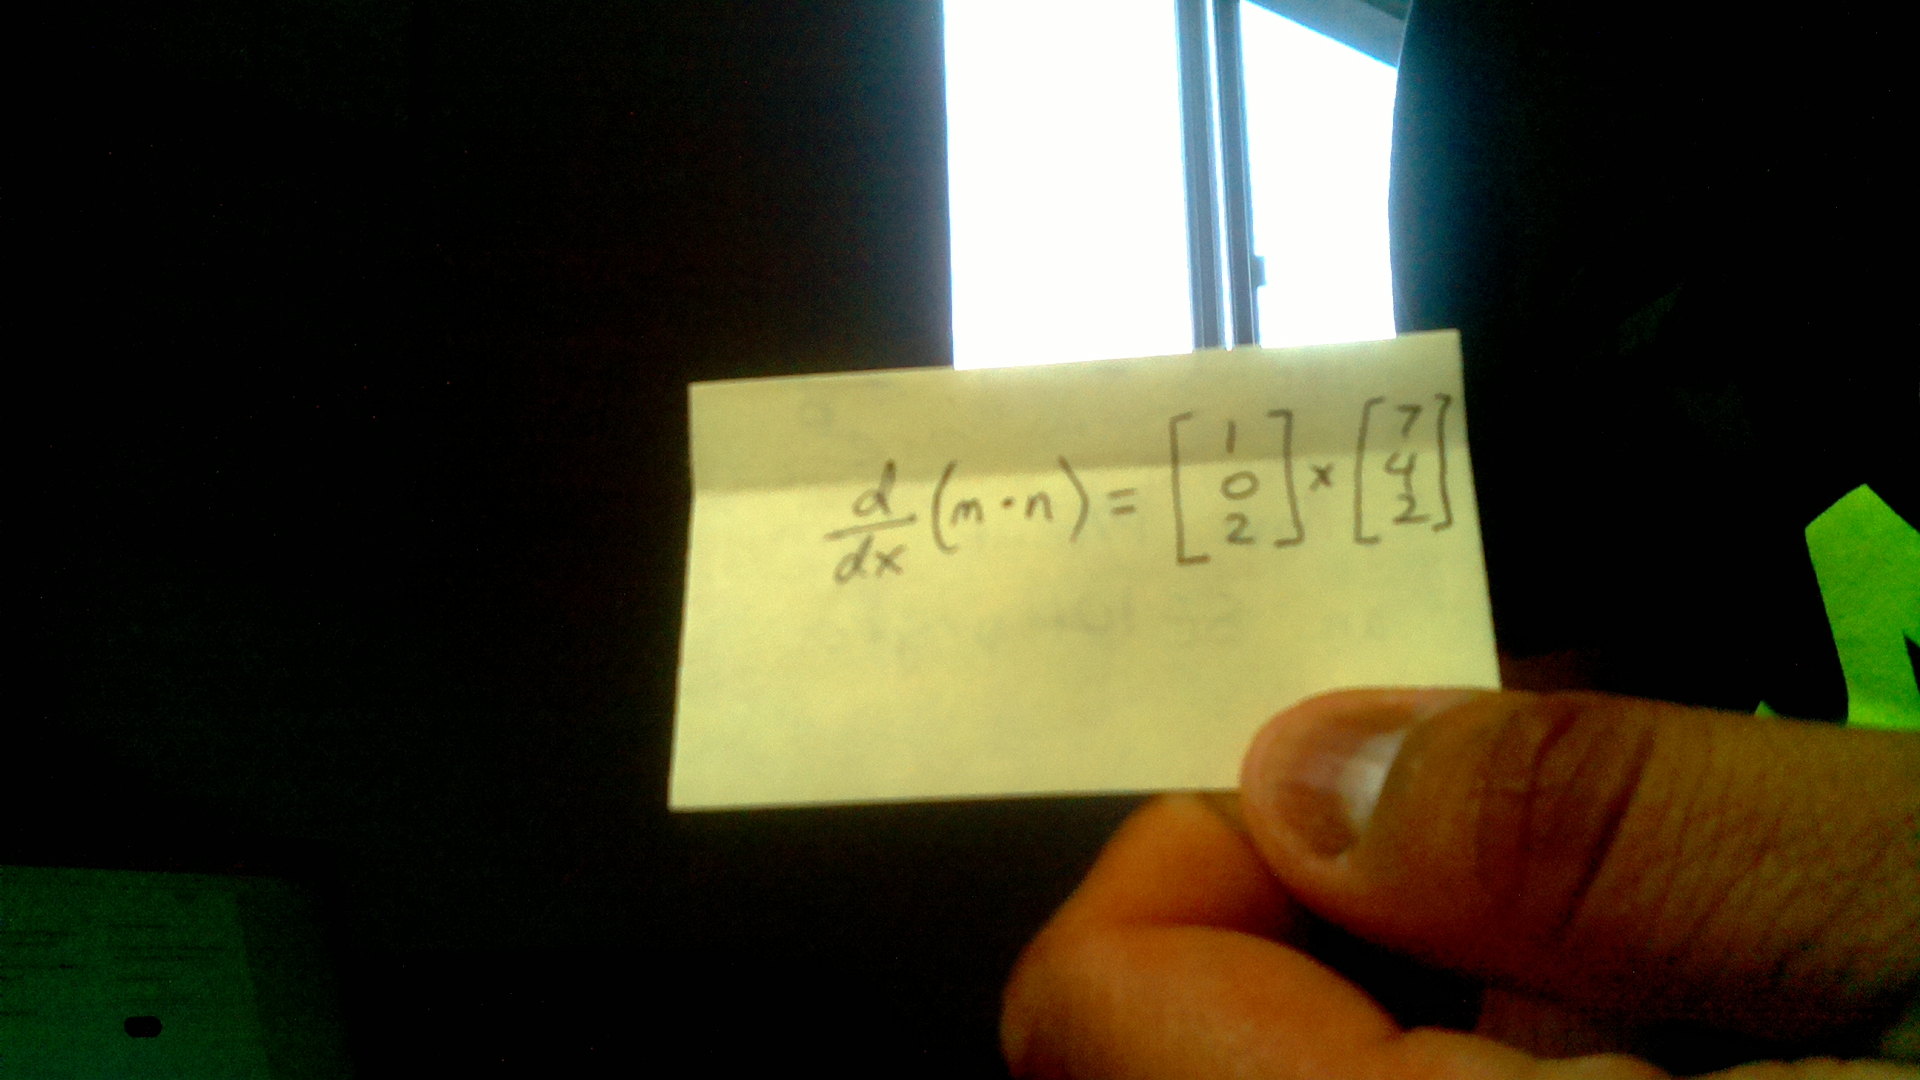 d/dx (m·n) = [1 0 2] × [7 4 2]